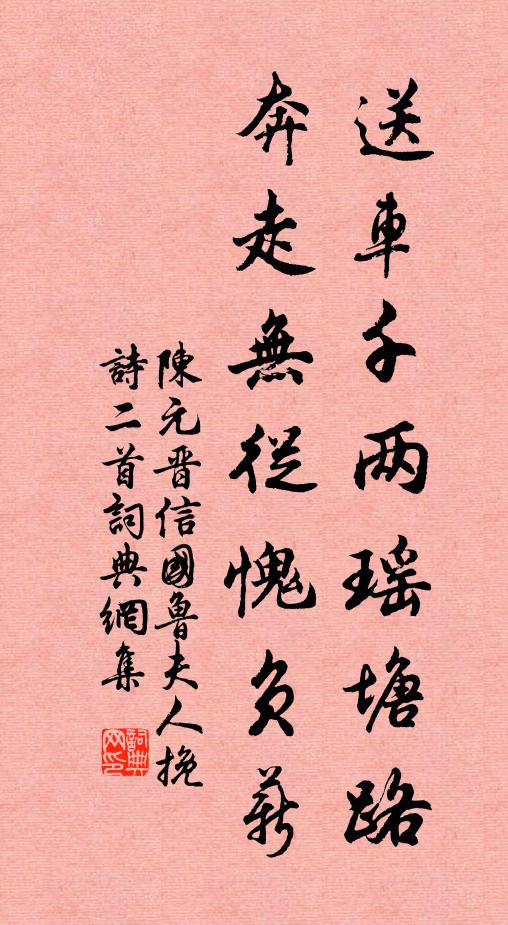 送車千两瑶塘路
奔走無從愧負薪
陳元晋信國魯夫人挽
詩二首詞典網集
詞典网印